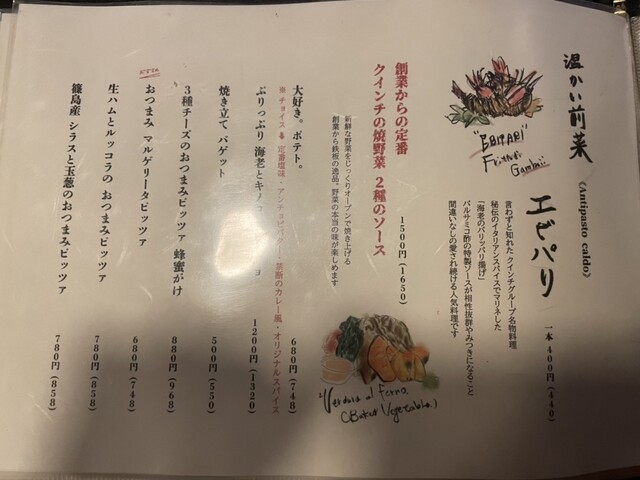 温かい前菜
《Antipasto caldo》
"EBIPARI"
エビパリ
一本 400円(440)
言わずと知れた クインチグループ名物料理
秘伝のイタリアンスパイスでマリネした
「海老のパリッパリ揚げ」
バルサミコ酢の特製ソースが相性抜群やみつきになること
間違いなしの愛され続ける人気料理です
創業からの定番
クインチの焼野菜 2種のソース
1500円(1650)
新鮮な野菜をじっくりオーブンで焼き上げる
創業から鉄板の逸品。野菜の本当の味が楽しめます
(Baked Vegetable.)
大好き。ポテト。
680円(748)
※チョイス 定番塩味・アンチョビバター・禁断のカレー風・オリジナルスパイス
ぷりっぷり 海老とキノコ
1200円(1320)
焼き立て バゲット
500円(550)
3種チーズのおつまみピッツァ 蜂蜜がけ
880円(968)
おつまみ マルゲリータピッツァ
680円(748)
生ハムとルッコラの おつまみピッツァ
780円(858)
篠島産 シラスと玉葱のおつまみピッツァ
780円(858)